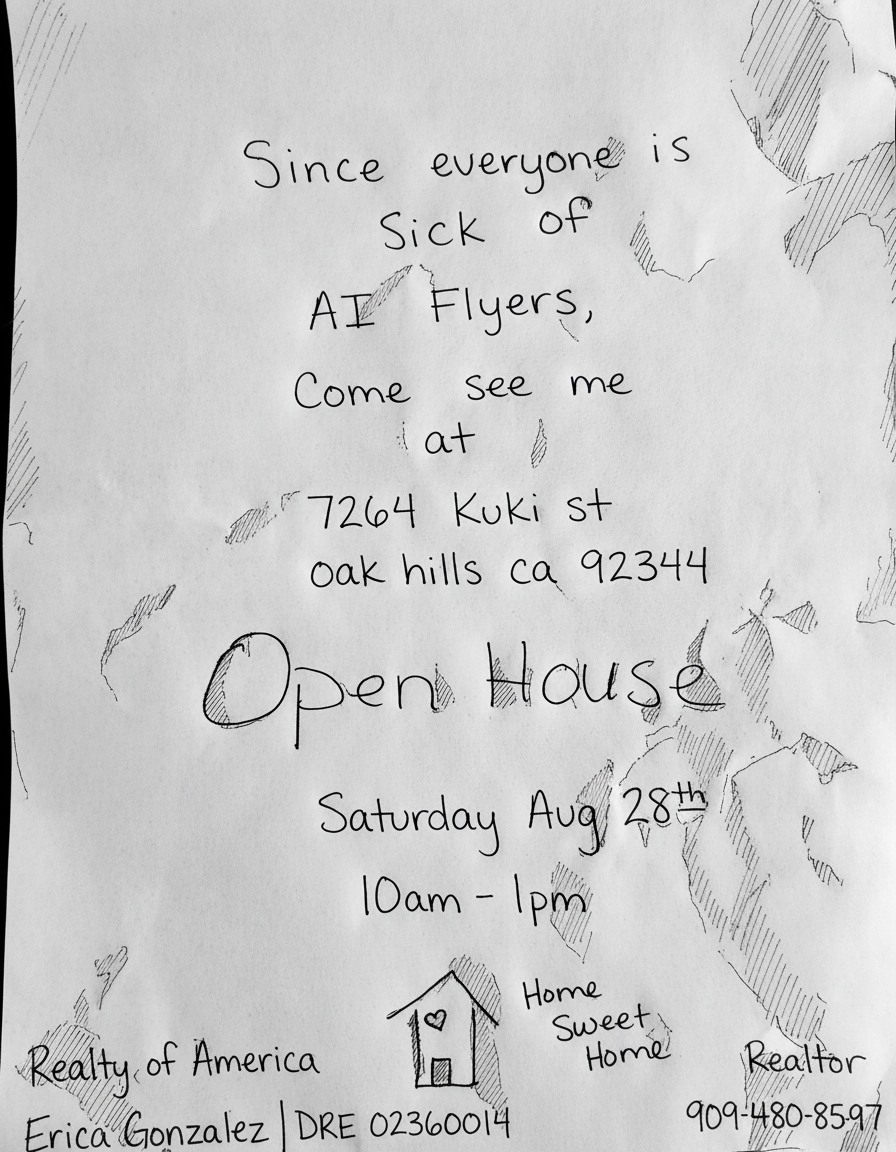 Since everyone is
Sick of
AI Flyers,
Come see me
at
7264 Kuki st
oak hills ca 92344
Open House
Saturday Aug 28th
10am - 1pm
Home
Sweet
Home
Realty of America
Realtor
Erica Gonzalez | DRE 02360014
909-480-8597